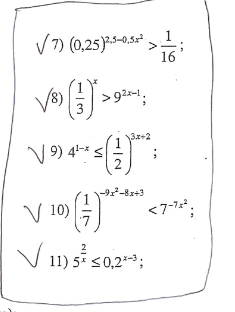 √ 7) (0,25)^{2,5-0,5x²} > 1/16 ;
√ 8) (1/3)^x > 9^{2x-1};
√ 9) 4^{1-x} ≤ (1/2)^{3x+2} ;
√ 10) (1/7)^{-9x²-8x+3} < 7^{-7x²} ;
√ 11) 5^{2/x} ≤ 0,2^{x-3} ;